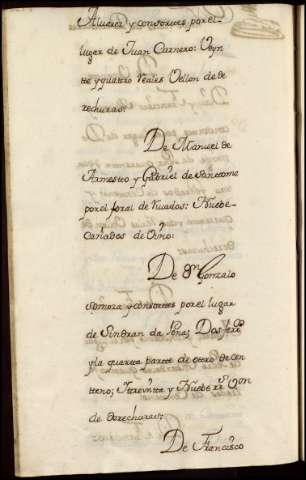 Alvarez y consortes por el-
lugar de Juan Carnero: Veyn
tte y quattro reales Vellon de de
rechuras:
De Manuel de
Armestto y Gabriel de
por el foral de Nuebe-
Cañados de Vino:
De Dn. Gonzalo
somoza y consorttes por el lugar
de Sindran da
y la quartta partte de ottro de Cen
tteno; Ttreyntta y Nuebe rrs. Von
de derechuras:
De Francisco